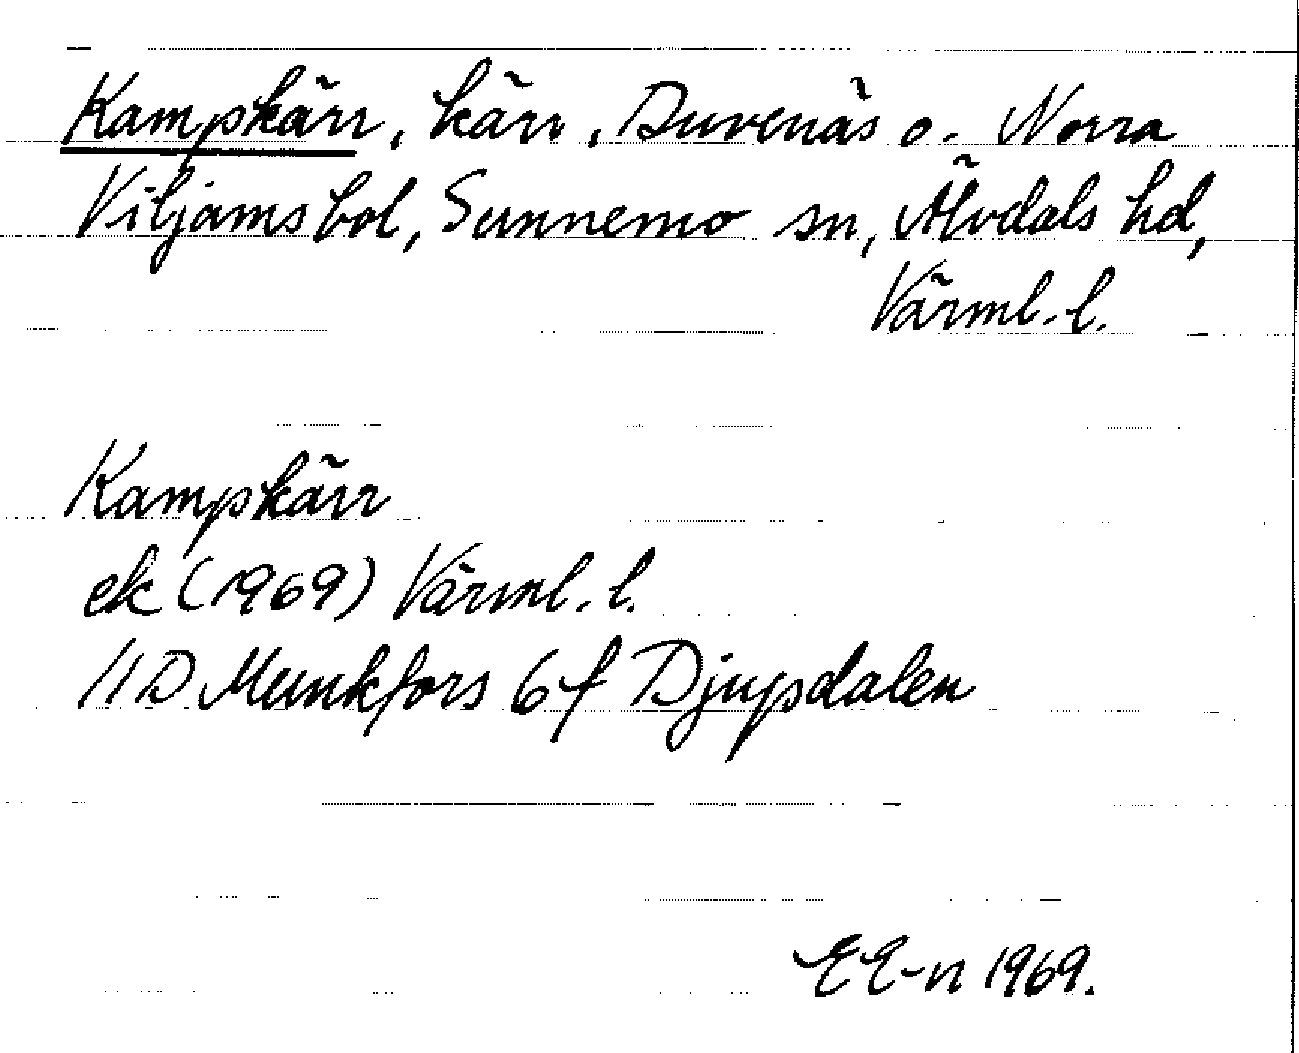 Kampkärr, kärr, Duvenäs o. Norra
Viljamsbol, Sunnemo sn, Älvdals hd,
Värml. l.
Kampkärr
ek (1969) Värml. l.
11D Munkfors 6f Djupdalen
EE-n 1969.